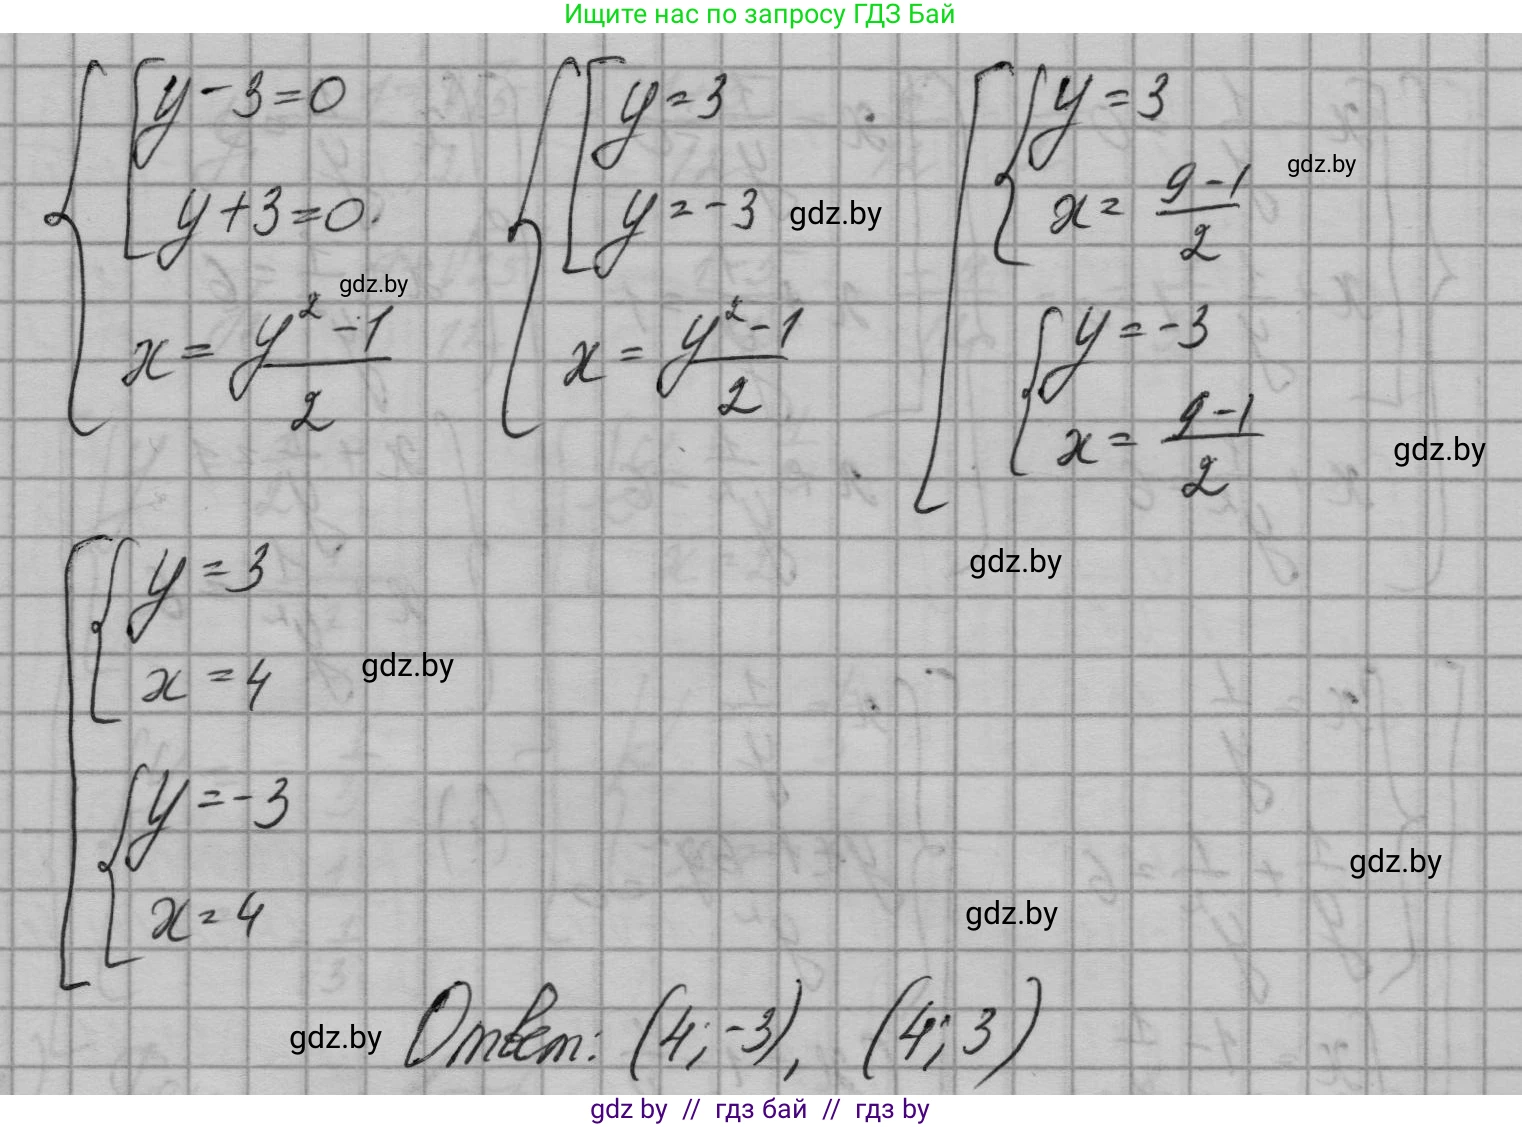 Ищите нас по запросу ГДЗ Бай
y - 3 = 0
y + 3 = 0
x = (y² - 1)/2
y = 3
y = -3
x = (y² - 1)/2
y = 3
x = (9 - 1)/2
y = -3
x = (9 - 1)/2
gdz.by
gdz.by
gdz.by
gdz.by
gdz.by
y = 3
x = 4
gdz.by
y = -3
x = 4
gdz.by
gdz.by
gdz.by
Ответ: (4; -3), (4; 3)
gdz by // гдз бай // гдз by